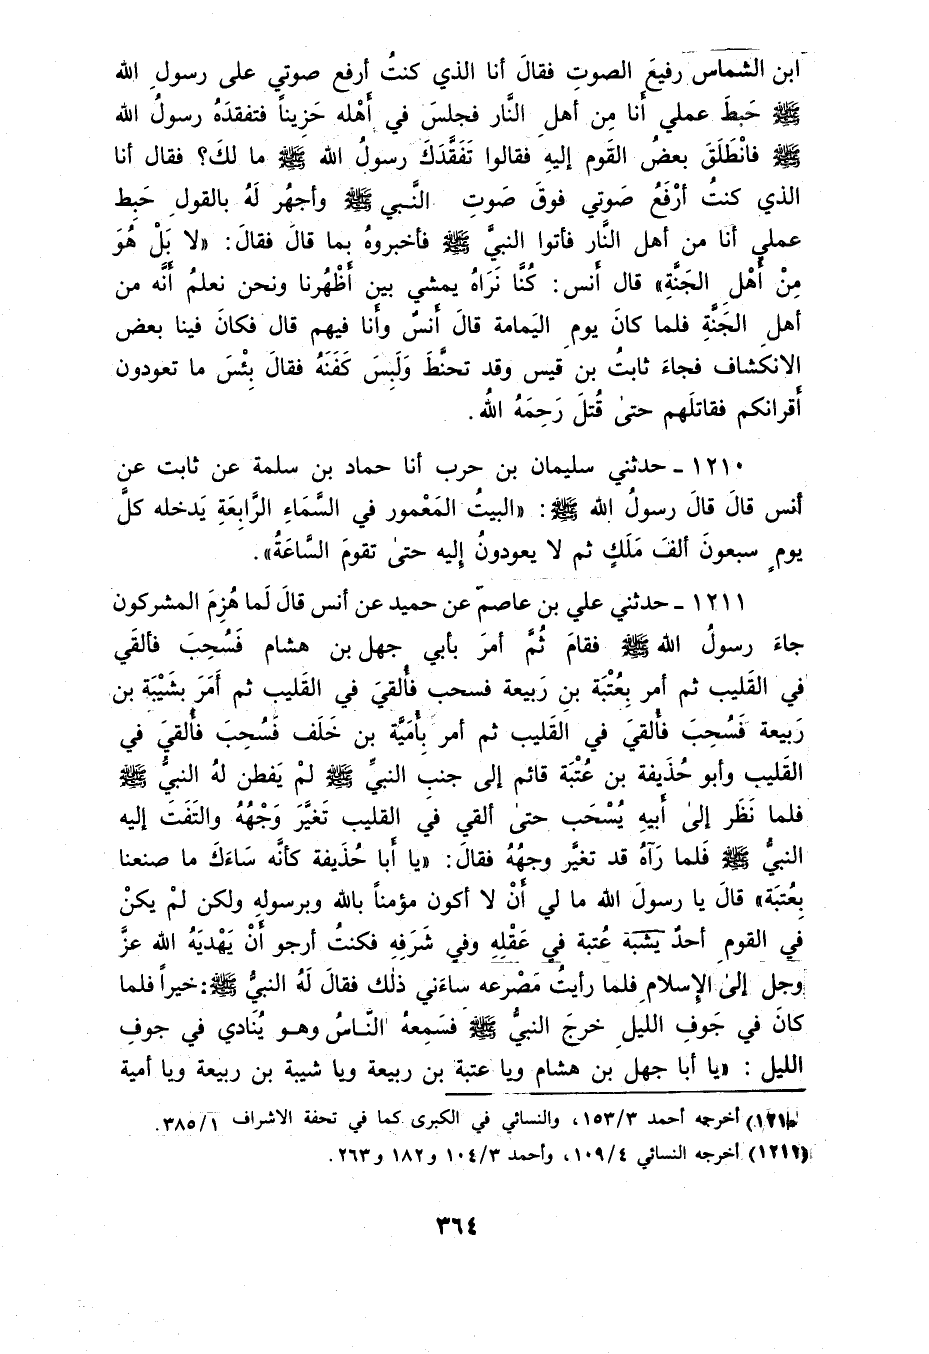 ابن الشماس رفيعَ الصوتِ فقالَ أنا الذي كنتُ أرفع صوتي على رسولِ الله
ﷺ حَبِطَ عملي أَنا مِن أهلِ النَّار فجلسَ في أَهْله حَزيناً فتفقدَهُ رسولُ الله
ﷺ فانْطَلَقَ بعضُ القَوم إليهِ فقالوا تَفَقَّدَكَ رسولُ الله ﷺ ما لكَ؟ فقال أنا
الذي كنتُ أرْفَعُ صَوتي فوقَ صَوتِ النَّبي ﷺ وأجهُر لَهُ بالقولِ حَبِط
عملي أنا من أهل النَّار فأتوا النبيَّ ﷺ فأخبروهُ بما قالَ فقالَ: «لا بَلْ هُوَ
مِنْ أَهْلِ الجَنَّةِ» قال أَنس: كُنَّا نَرَاهُ يمشي بين أَظْهُرنا ونحن نعلمُ أَنَّه من
أهلِ الجَنَّةِ فلما كانَ يومِ اليَمامة قالَ أَنسٌ وأَنا فيهم قال فكانَ فينا بعض
الانكشاف فجاءَ ثابتُ بن قيس وقد تحنَّطَ وَلَبِسَ كَفَنَهُ فقالَ بِئْسَ ما تعودون
أَقرانكم فقاتلَهم حتىٰ قُتلَ رَحِمَهُ اللهُ.
١٢١٠ ـ حدثني سليمان بن حرب أنا حماد بن سلمة عن ثابت عن
أنس قالَ قالَ رسولُ الله ﷺ: «البيتُ المَعْمور في السَّمَاءِ الرَّابِعَةِ يَدخله كلَّ
يومٍ سبعونَ ألفَ مَلَكٍ ثم لا يعودونُ إليه حتىٰ تقومَ السَّاعَةُ».
١٢١١ ـ حدثني علي بن عاصم عن حميد عن أنس قالَ لَما هُزِمَ المشركون
جاءَ رسولُ الله ﷺ فقامَ ثُمَّ أمرَ بأبي جهل بن هشام فَسُحِبَ فألقَي
في القَليب ثم أمر بِعُتْبَة بنِ رَبيعة فسحب فأُلقيَ في القَليب ثم أَمَرَ بشَيْبَة بن
رَبيعة فَسُحِبَ فأُلقيَ في القَليب ثم أمر بِأُمَيَّة بن خَلَف فَسُحِبَ فأُلقيَ في
القَليب وأبو حُذَيفة بن عُتْبَة قائم إلى جنب النبيِّ ﷺ لمْ يَفطن لهُ النبيُّ ﷺ
فلما نَظَر إلىٰ أَبيهِ يُسْحَب حتىٰ ألقي في القليب تَغيَّرَ وَجْهُهُ والتَفَتَ إليه
النبيُّ ﷺ فَلما رَآهُ قد تغيَّر وجهُهُ فقالَ: «يا أَبا حُذَيفة كأنَّه سَاءَكَ ما صنعنا
بِعُتبَة» قالَ يا رسولَ الله ما لي أَنْ لا أكون مؤمناً بالله وبرسولهِ ولكن لمْ يكنْ
في القومِ أحدٌ يشبَة عُتبة في عَقْلِهِ وفي شَرَفِهِ فكنتُ أرجو أَنْ يَهْديَهُ الله عزَّ
وجل إلىٰ الإسلامِ فلما رأيتُ مَصْرعه ساءَني ذلك فقالَ لَهُ النبيُّ ﷺ:خيراً فلما
كانَ في جَوفِ الليلِ خرجَ النبيُّ ﷺ فسَمِعهُ النَّاسُ وهو يُنَادي في جوفِ
الليل : «يا أبا جهل بن هشام ويا عتبة بن ربيعة ويا شيبة بن ربيعة ويا أمية
(١٢١٠) أخرجه أحمد ١٥٣/٣، والنسائي في الكبرى كما في تحفة الاشراف ٣٨٥/١.
(١٢١٢) أخرجه النسائي ١٠٩/٤، وأحمد ١٠٤/٣ و١٨٢ و٢٦٣.
٣٦٤